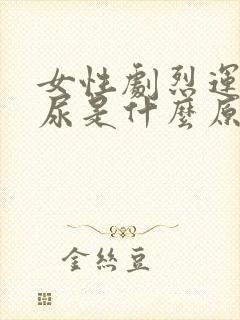 女性劇烈運
尿是什麼原
金絲豆